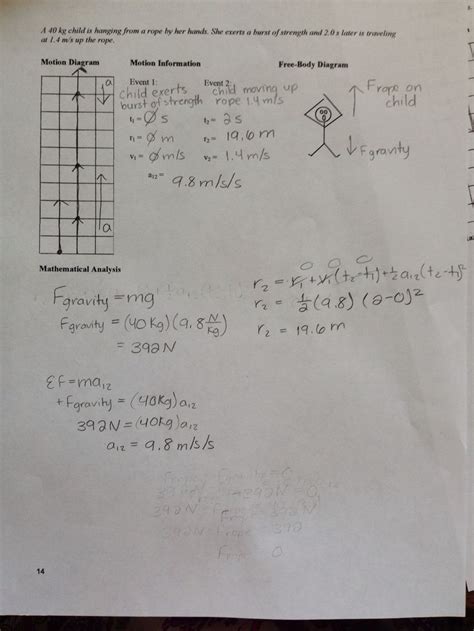 A 40 kg child is hanging from a rope by her hands. She exerts a burst of strength and 2.0 s later is traveling
at 1.4 m/s up the rope.
Motion Diagram
Motion Information
Free-Body Diagram
a
a
Event 1:
child exerts
burst of strength
t₁ = Ø s
r₁ = Ø m
v₁ = Ø m/s
Event 2:
child moving up
rope 1.4 m/s
t₂ = 2 s
r₂ = 19.6 m
v₂ = 1.4 m/s
a₁₂ = 9.8 m/s/s
↑ F rope on
child
↓ F gravity
Mathematical Analysis
F gravity = mg
F gravity = (40 kg)(9.8 N/kg)
= 392 N
ΣF = ma₁₂
+ F gravity = (40kg) a₁₂
392 N = (40kg) a₁₂
a₁₂ = 9.8 m/s/s
0 0 0
r₂ = r₁ + v₁(t₂ - t₁) + ½ a₁₂ (t₂ - t₁)²
r₂ = ½ (9.8) (2-0)²
r₂ = 19.6 m
14